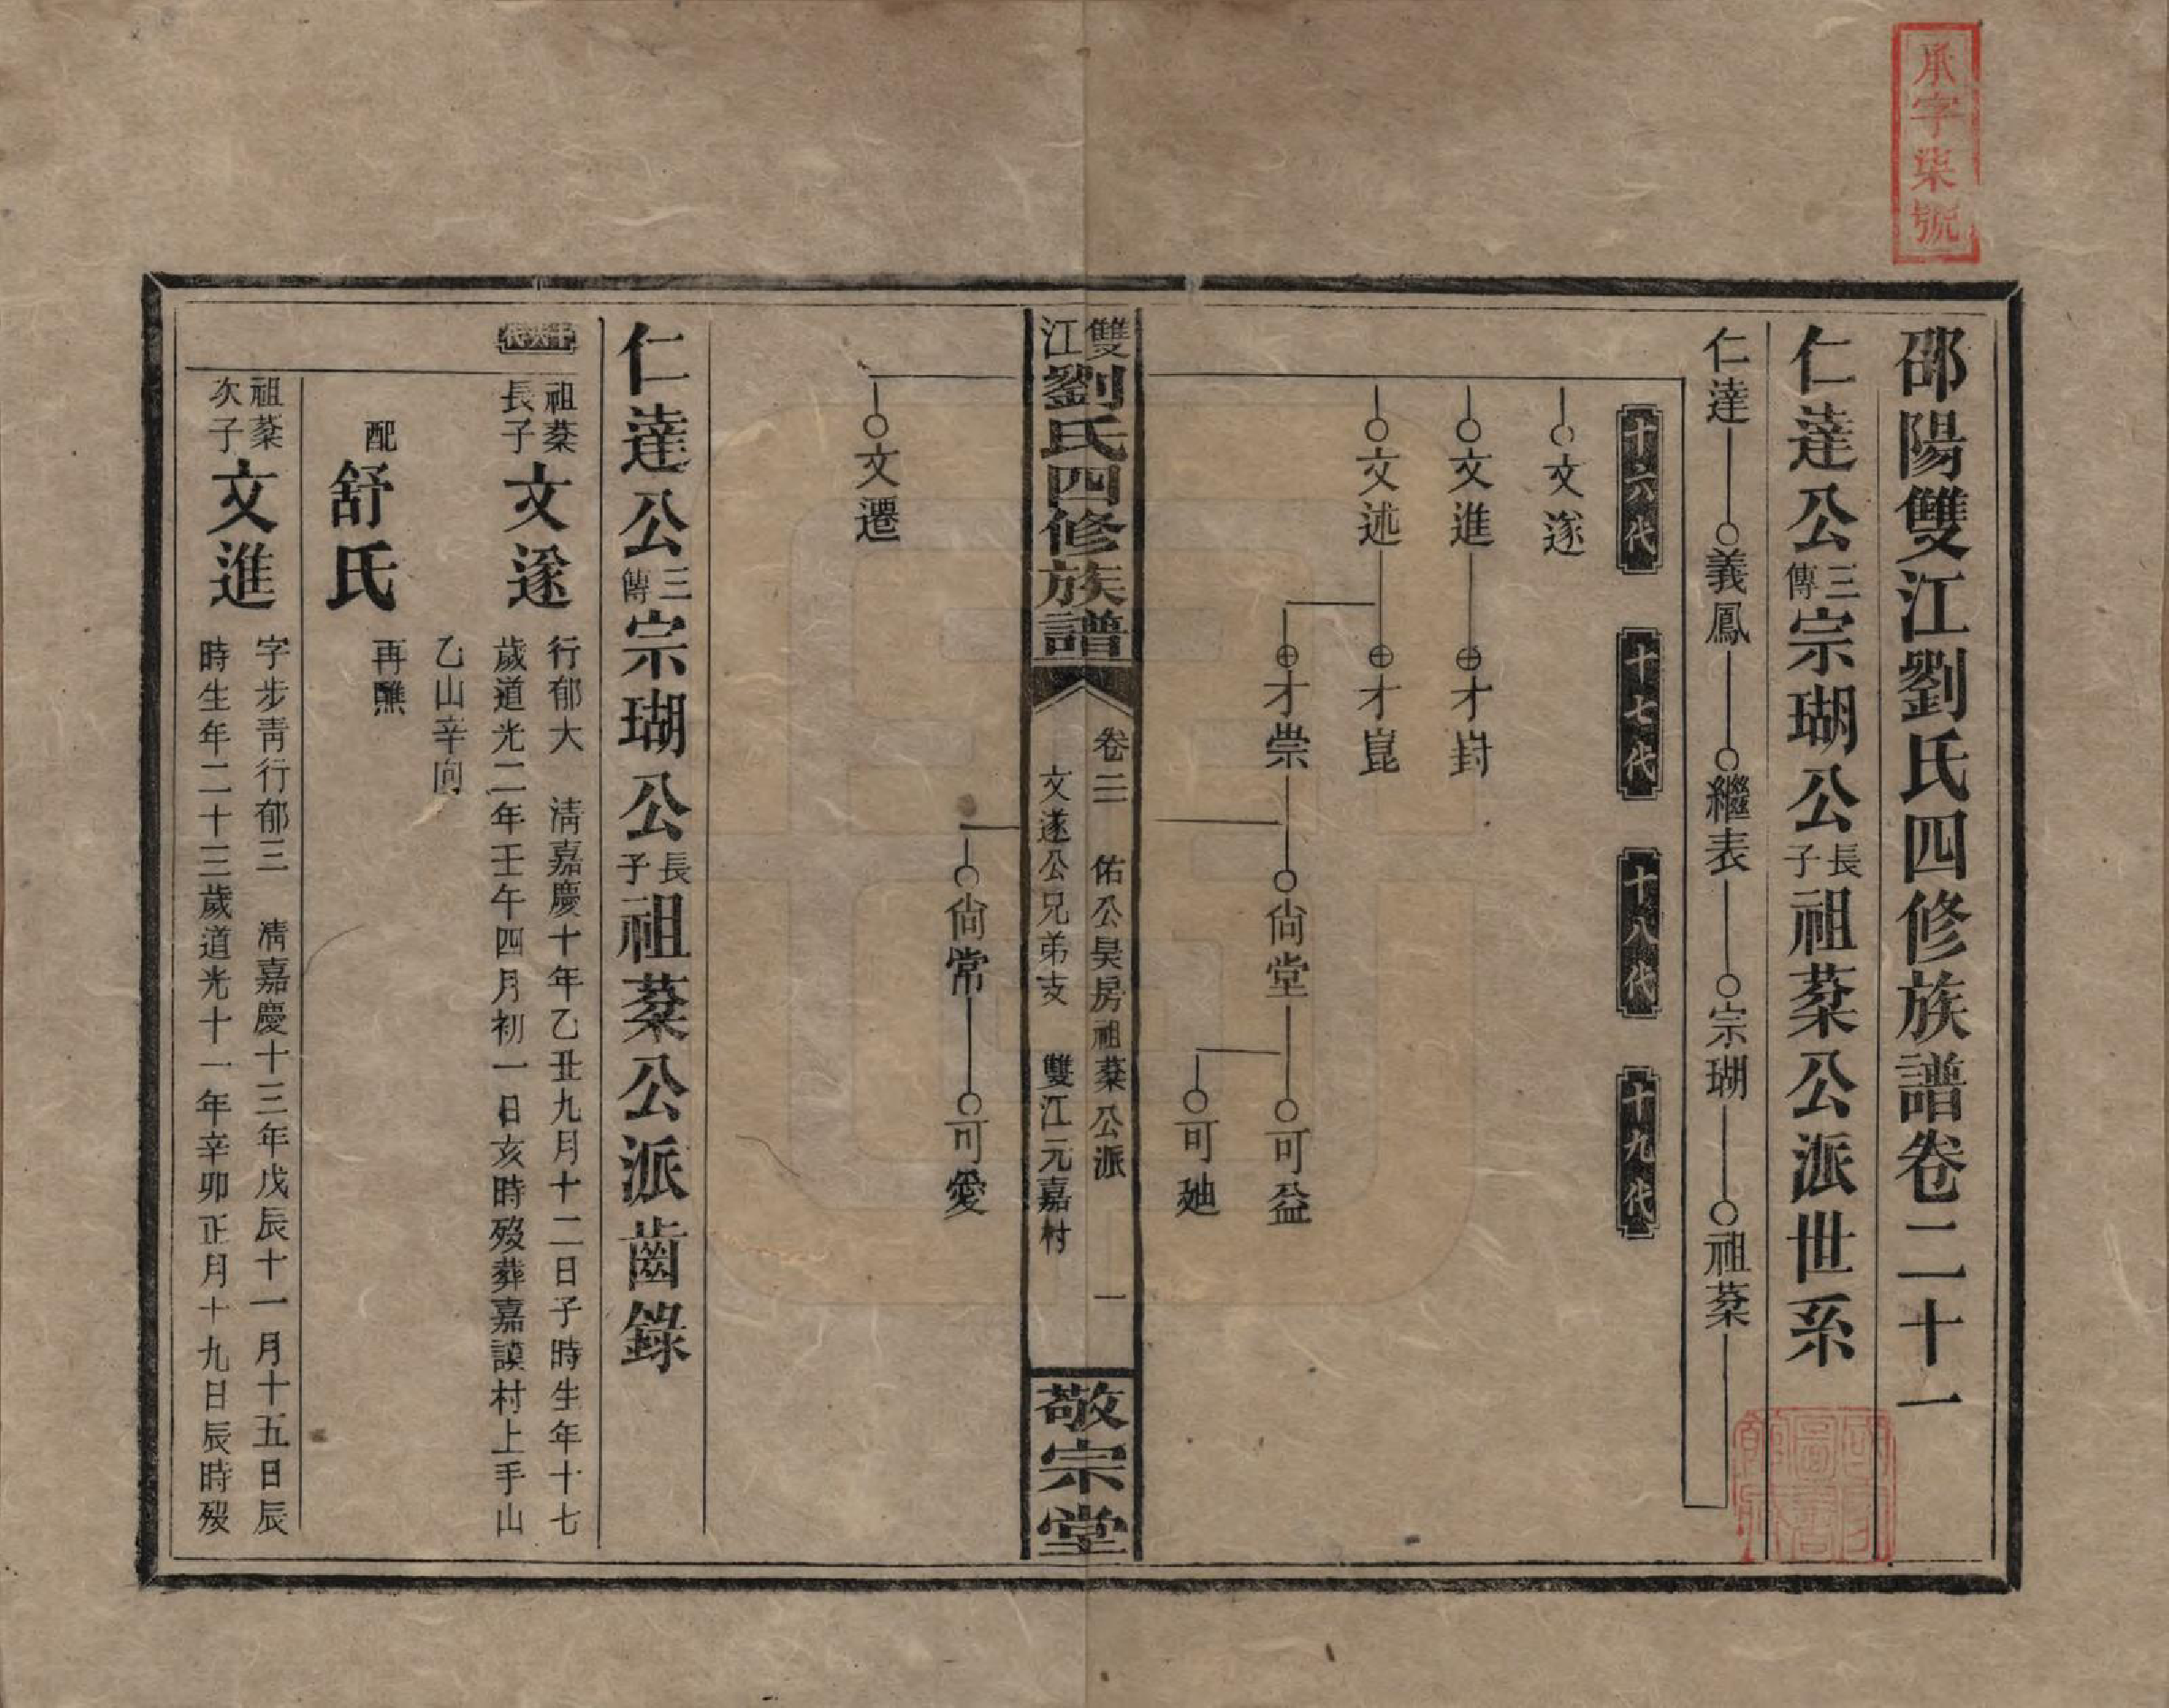 承字柒號
邵陽雙江劉氏四修族譜卷二十一
仁達公三傳宗瑚公長子祖棻公派世系
仁達 義鳳 繼表 宗瑚 祖棻
十六代 十七代 十八代 十九代
文遂
文進 才封
文述 才崑
才崇 尙堂 可益
可廸
雙江劉氏四修族譜
卷二 佑公昊房祖棻公派 一
文遂公兄弟支 雙江元嘉村
敬宗堂
尙常 可愛
文遷
仁達公三傳宗瑚公長子祖棻公派齒錄
十六代
祖棻長子文遂 行郁大 淸嘉慶十年乙丑九月十二日子時生年十七
歲道光二年壬午四月初一日亥時歿葬嘉謨村上手山
乙山辛向
配舒氏 再醮
祖棻次子文進 字步靑行郁三 淸嘉慶十三年戊辰十一月十五日辰
時生年二十三歲道光十一年辛卯正月十九日辰時歿